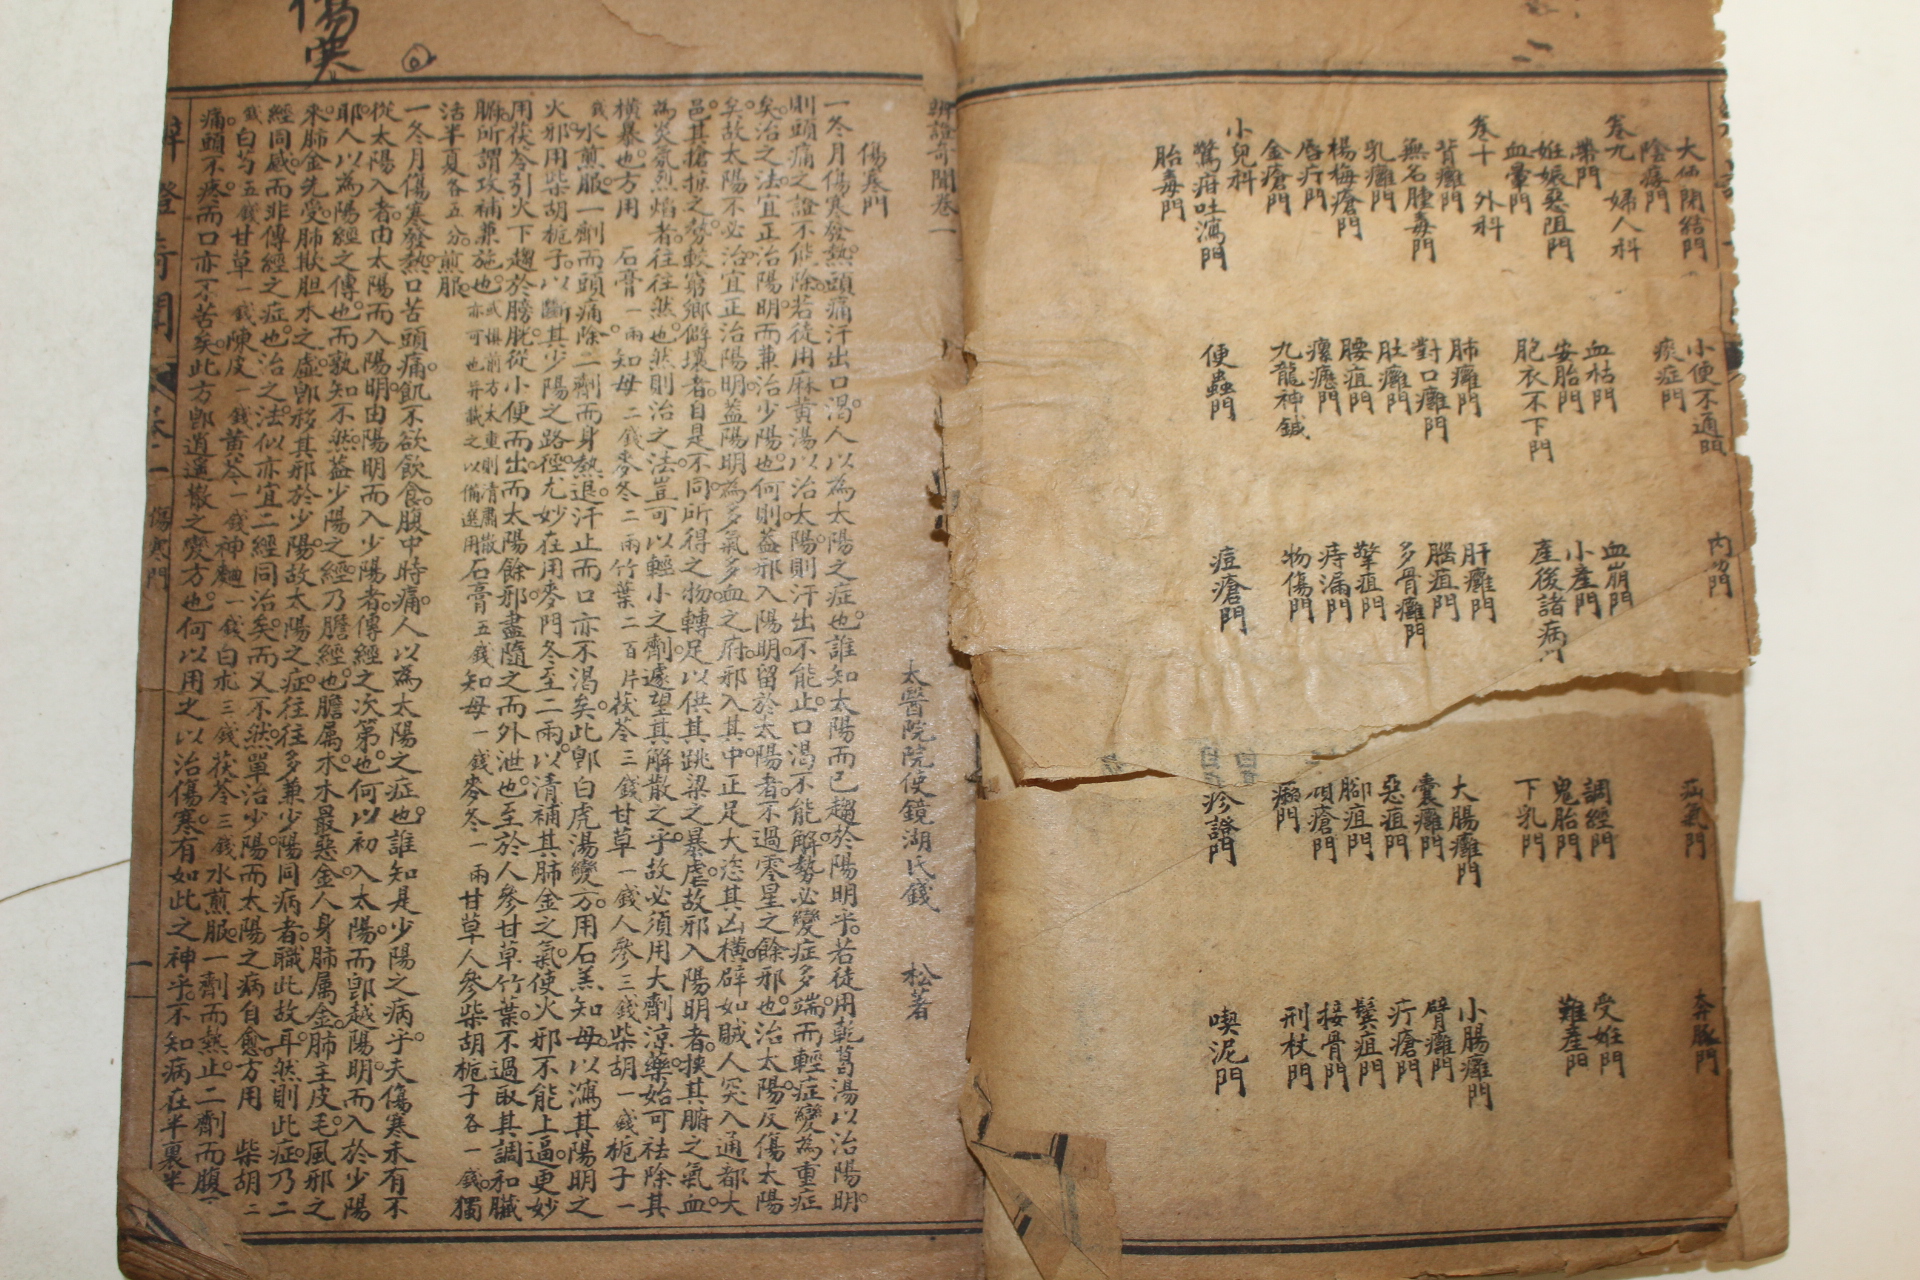 大便閉結門 小便不通門 內門 疝氣門 奔豚門
陰痿門 痰症門
卷九 婦人科
帶門 血枯門 血崩門 調經門 受妊門
妊娠惡阻門 安胎門 小產門 鬼胎門 難產門
血暈門 胞衣不下門 產後諸病門 下乳門
卷十 外科
背癰門 肺癰門 肝癰門 大腸癰門 小腸癰門
無名腫毒門 對口癰門 腦疽門 囊癰門 臂癰門
乳癰門 肚癰門 多骨癰門 惡疽門 疔瘡門
楊梅瘡門 腰疽門 擎疽門 腳疽門 鬢疽門
唇疔門 瘰癧門 痔漏門 頑瘡門 接骨門
金瘡門 九龍神鍼 物傷門 癩門 刑杖門
小兒科
驚疳吐瀉門 便蟲門 痘瘡門 疹證門 喫泥門
胎毒門
傷寒
辨證奇聞卷一
太醫院院使鏡湖氏錢 松著
傷寒門
一冬月傷寒發熱。頭痛汗出口渴。人以為太陽之症也。誰知太陽而已趨於陽明乎。若徒用乾葛湯以治陽明。
則頭痛之證不能除。若徒用麻黃湯以治太陽。則汗出不能止。口渴不能解。勢必變症多端。而輕症變為重症
矣。治之法宜正治陽明而兼治少陽也。何則。蓋邪入陽明。留於太陽者。不過零星之餘邪也。治太陽反傷太陽
矣。故太陽不必治。宜正治陽明。蓋陽明為多氣多血之府。邪入其中。正足大恣其凶橫。辟如賊人突入通都大
邑。其搶掠之勢。較窮鄉僻壤者。自是不同。所得之物。轉足以供其跳梁之暴虐。故邪入陽明者。挾其腑之氣血。
為炎氛烈焰者往往然也。然則治之法。豈可以輕小之劑。遽望其解散之乎。故必須用大劑涼藥。始可祛除其
橫暴也。方用 石膏一兩 知母二錢 麥冬二兩 竹葉二百片 茯苓三錢 甘草一錢 人參三錢 柴胡一錢 梔子一
錢水煎服。一劑而頭痛除。二劑而身熱退。汗止而口亦不渴矣。此卽白虎湯變方。用石羔知母以瀉其陽明之
火邪。用柴胡梔子以斷其少陽之路徑。尤妙在用麥門冬至二兩。以清補其肺金之氣。使火邪不能上逼。更妙
用茯苓引火下趨於膀胱。從小便而出。而太陽餘邪盡隨之而外泄也。至於人參甘草竹葉。不過取其調和臟
腑。所謂攻補兼施也。或惧前方太重則清肅散亦可也并載之以備選用石膏五錢知母一錢麥冬一兩甘草人參柴胡梔子各一錢。獨
活半夏各五分。煎服。
一冬月傷寒發熱。口苦頭痛。飢不欲飲食。腹中時痛。人以為太陽之症也。誰知是少陽之病乎。夫傷寒未有不
從太陽入者。由太陽而入陽明。由陽明而入少陽者。傳經之次第也。何以初入太陽。而卽越陽明而入於少陽
耶。人以為陽經之傳也。而孰知不然。蓋少陽之經。乃膽經也。膽属木。木最惡金。人身肺属金。肺主皮毛。風邪之
來。肺金先受。肺挾胆木之虛。卽移其邪於少陽。故太陽之症。往往多兼少陽同病者。職此故耳。然則此症乃二
經同感。而非傳經之症也。治之法似亦宜二經同治矣。而又不然。單治少陽。而太陽之病自愈。方用 柴胡二
錢白芍五錢甘草一錢陳皮一錢黃芩一錢神麯一錢白朮三錢茯苓三錢水煎服。一劑而熱止。二劑而腹不
痛。頭不疼。而口亦不苦矣。此方卽逍遥散之變方也。何以用之以治傷寒。有如此之神乎。不知病在半裏半
辨證奇聞 卷一 傷寒門 一